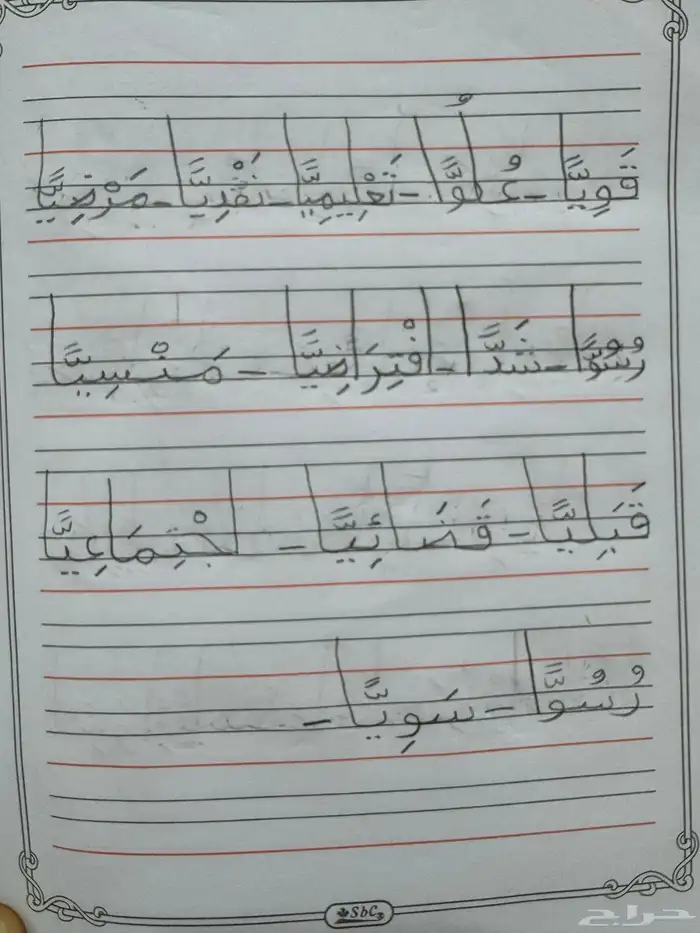 قَوِيًّا - عُلُوًّا - تَعْلِيمِيًّا - نَقْدِيًّا - مَرْضِيًّا
رُسُوًّا - شَدًّا - افْتِرَاضِيًّا - مَنْسِيًّا
قَبَلِيًّا - قَضَائِيًّا - اجْتِمَاعِيًّا
رُسُوًّا - سَوِيًّا -
SbC
حراج